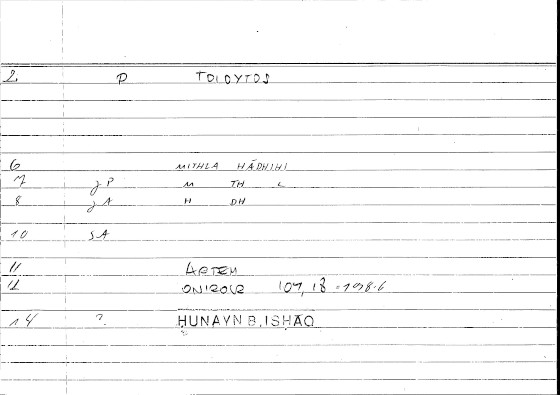 2 P TOIOYTOS
6 MITHLA HĀDHIHI
7 jP M TH L
8 jA H DH
10 SA
11 ARTEM
12 ONIROCR 107, 18 = 198.6
14 ? HUNAYN B. ISHAQ